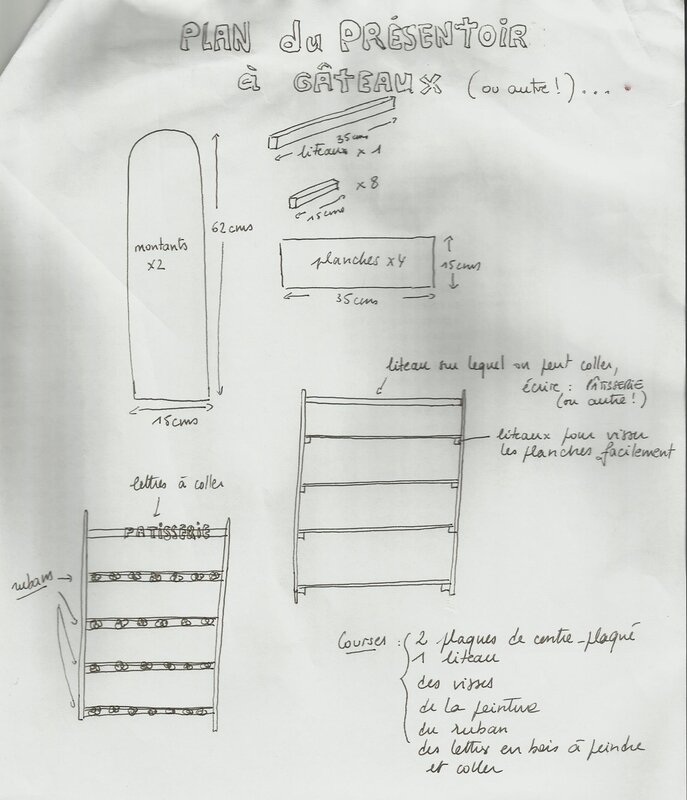 PLAN du PRÉSENTOIR
à GÂTEAUX (ou autre!)...
35cms
liteaux x 1
x 8
15cms
62cms
montants
x2
planches x4
15cms
35cms
15cms
liteau sur lequel on peut coller,
écrire : PÂTISSERIE
(ou autre!)
liteaux pour visser
les planches facilement
lettres à coller
PATISSERIE
rubans
Courses : 2 plaques de contre-plaqué
1 liteau
des visses
de la peinture
du ruban
des lettres en bois à peindre
et coller